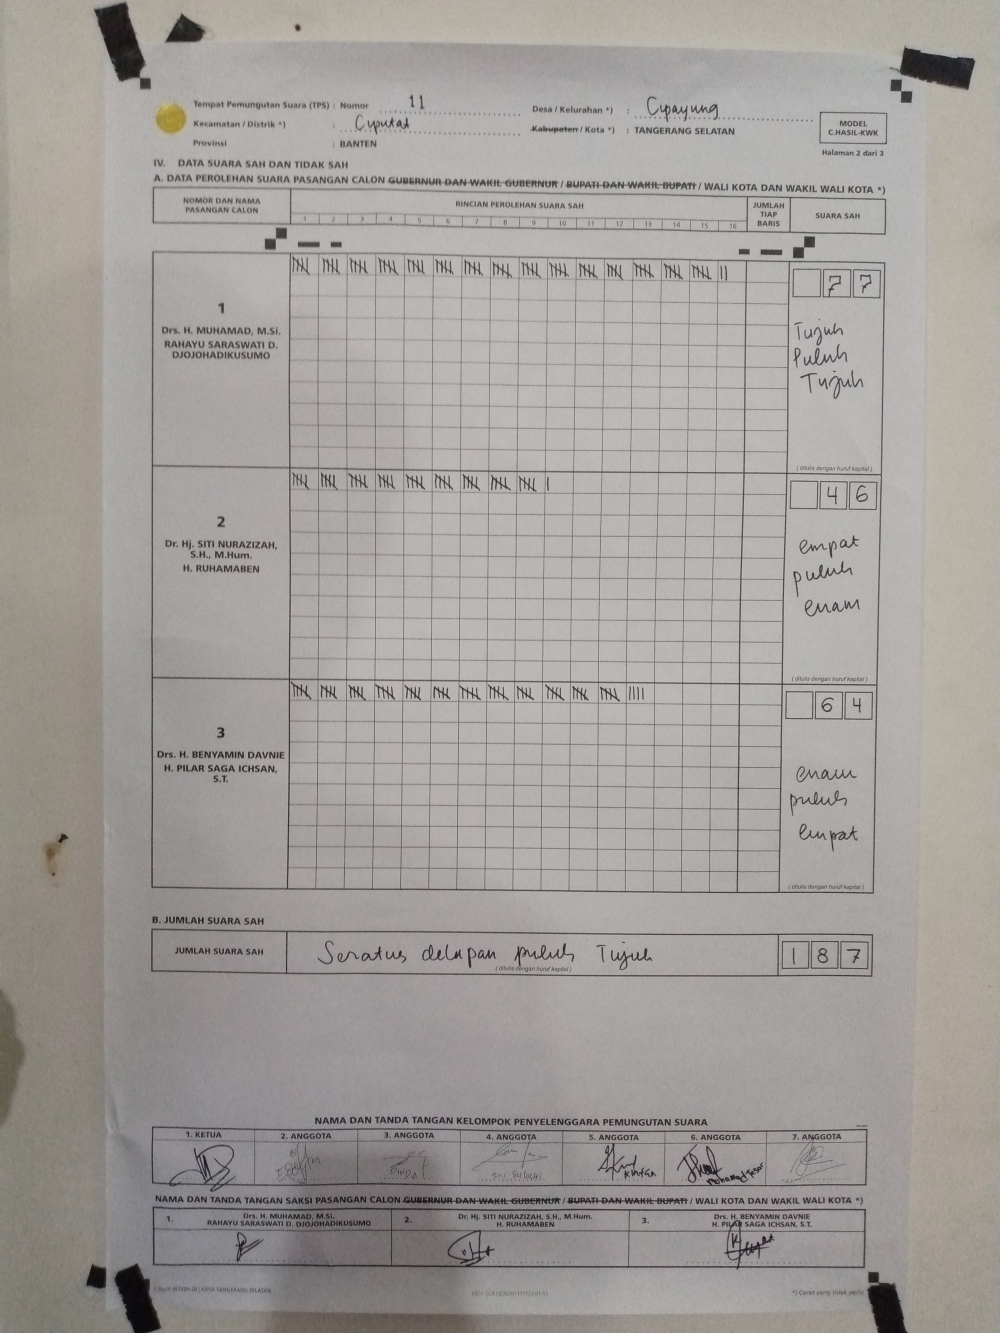 Tempat Pemungutan Suara (TPS) : Nomor 11
Desa / Kelurahan *) : Cipayung
Kecamatan / Distrik *) : Ciputat
Kabupaten / Kota *) : TANGERANG SELATAN
Provinsi : BANTEN
MODEL
C.HASIL-KWK
Halaman 2 dari 3
IV. DATA SUARA SAH DAN TIDAK SAH
A. DATA PEROLEHAN SUARA PASANGAN CALON GUBERNUR DAN WAKIL GUBERNUR / BUPATI DAN WAKIL BUPATI / WALI KOTA DAN WAKIL WALI KOTA *)
NOMOR DAN NAMA
PASANGAN CALON
RINCIAN PEROLEHAN SUARA SAH
1 2 3 4 5 6 7 8 9 10 11 12 13 14 15 16
JUMLAH
TIAP
BARIS
SUARA SAH
1
Drs. H. MUHAMAD, M.Si.
RAHAYU SARASWATI D.
DJOJOHADIKUSUMO
77
Tujuh
Puluh
Tujuh
( ditulis dengan huruf kapital )
2
Dr. Hj. SITI NURAZIZAH,
S.H., M.Hum.
H. RUHAMABEN
46
empat
puluh
enam
( ditulis dengan huruf kapital )
3
Drs. H. BENYAMIN DAVNIE
H. PILAR SAGA ICHSAN,
S.T.
64
enam
puluh
empat
( ditulis dengan huruf kapital )
B. JUMLAH SUARA SAH
JUMLAH SUARA SAH
Seratus delapan puluh Tujuh
( ditulis dengan huruf kapital )
187
NAMA DAN TANDA TANGAN KELOMPOK PENYELENGGARA PEMUNGUTAN SUARA
1. KETUA
2. ANGGOTA
3. ANGGOTA
4. ANGGOTA
5. ANGGOTA
6. ANGGOTA
7. ANGGOTA
NAMA DAN TANDA TANGAN SAKSI PASANGAN CALON GUBERNUR DAN WAKIL GUBERNUR / BUPATI DAN WAKIL BUPATI / WALI KOTA DAN WAKIL WALI KOTA *)
1. Drs. H. MUHAMAD, M.Si.
RAHAYU SARASWATI D. DJOJOHADIKUSUMO
2. Dr. Hj. SITI NURAZIZAH, S.H., M.Hum.
H. RUHAMABEN
3. Drs. H. BENYAMIN DAVNIE
H. PILAR SAGA ICHSAN, S.T.
*) Coret yang tidak perlu